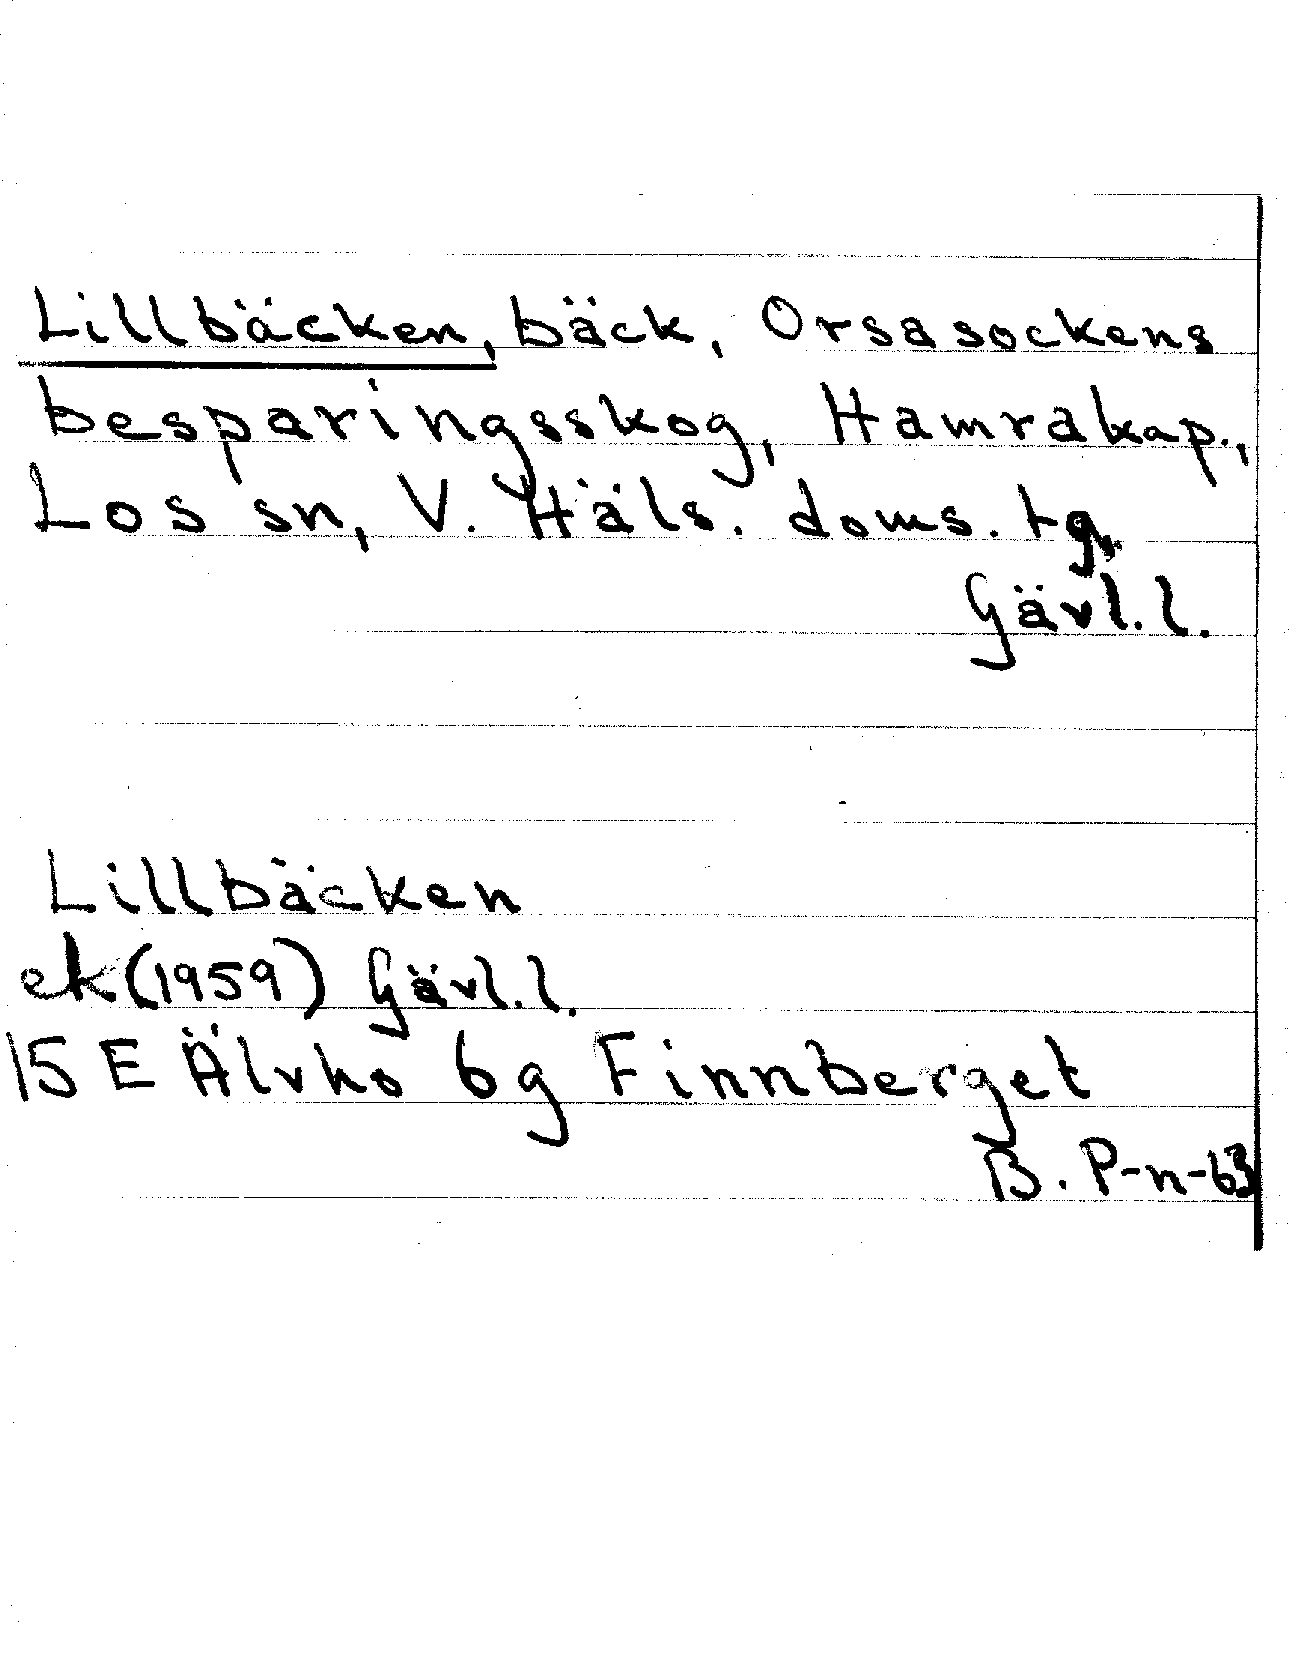 Lillbäcken, bäck, Orsasockens
besparingsskog, Hamrakap.,
Los sn, V. Häls. doms. tg.
Gävl. l.
Lillbäcken
ek (1959) Gävl. l.
15 E Älvho 6g Finnberget
B. P-n-63